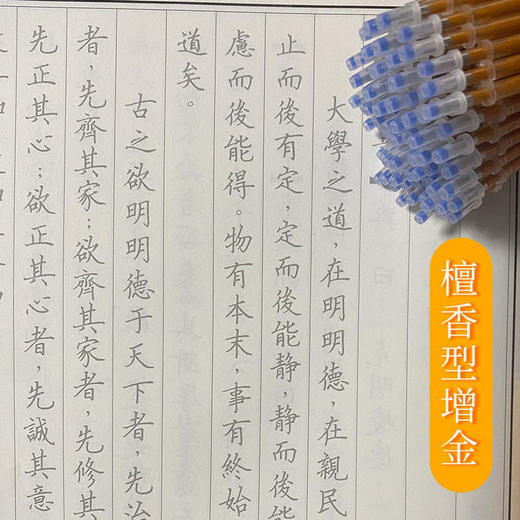 大學之道，在明明德，在親民
止而後有定，定而後能静，静而後能
慮而後能得。物有本末，事有終始
道矣。
古之欲明明德于天下者，先治
者，先齊其家；欲齊其家者，先修其
先正其心；欲正其心者，先誠其意
檀香型增金